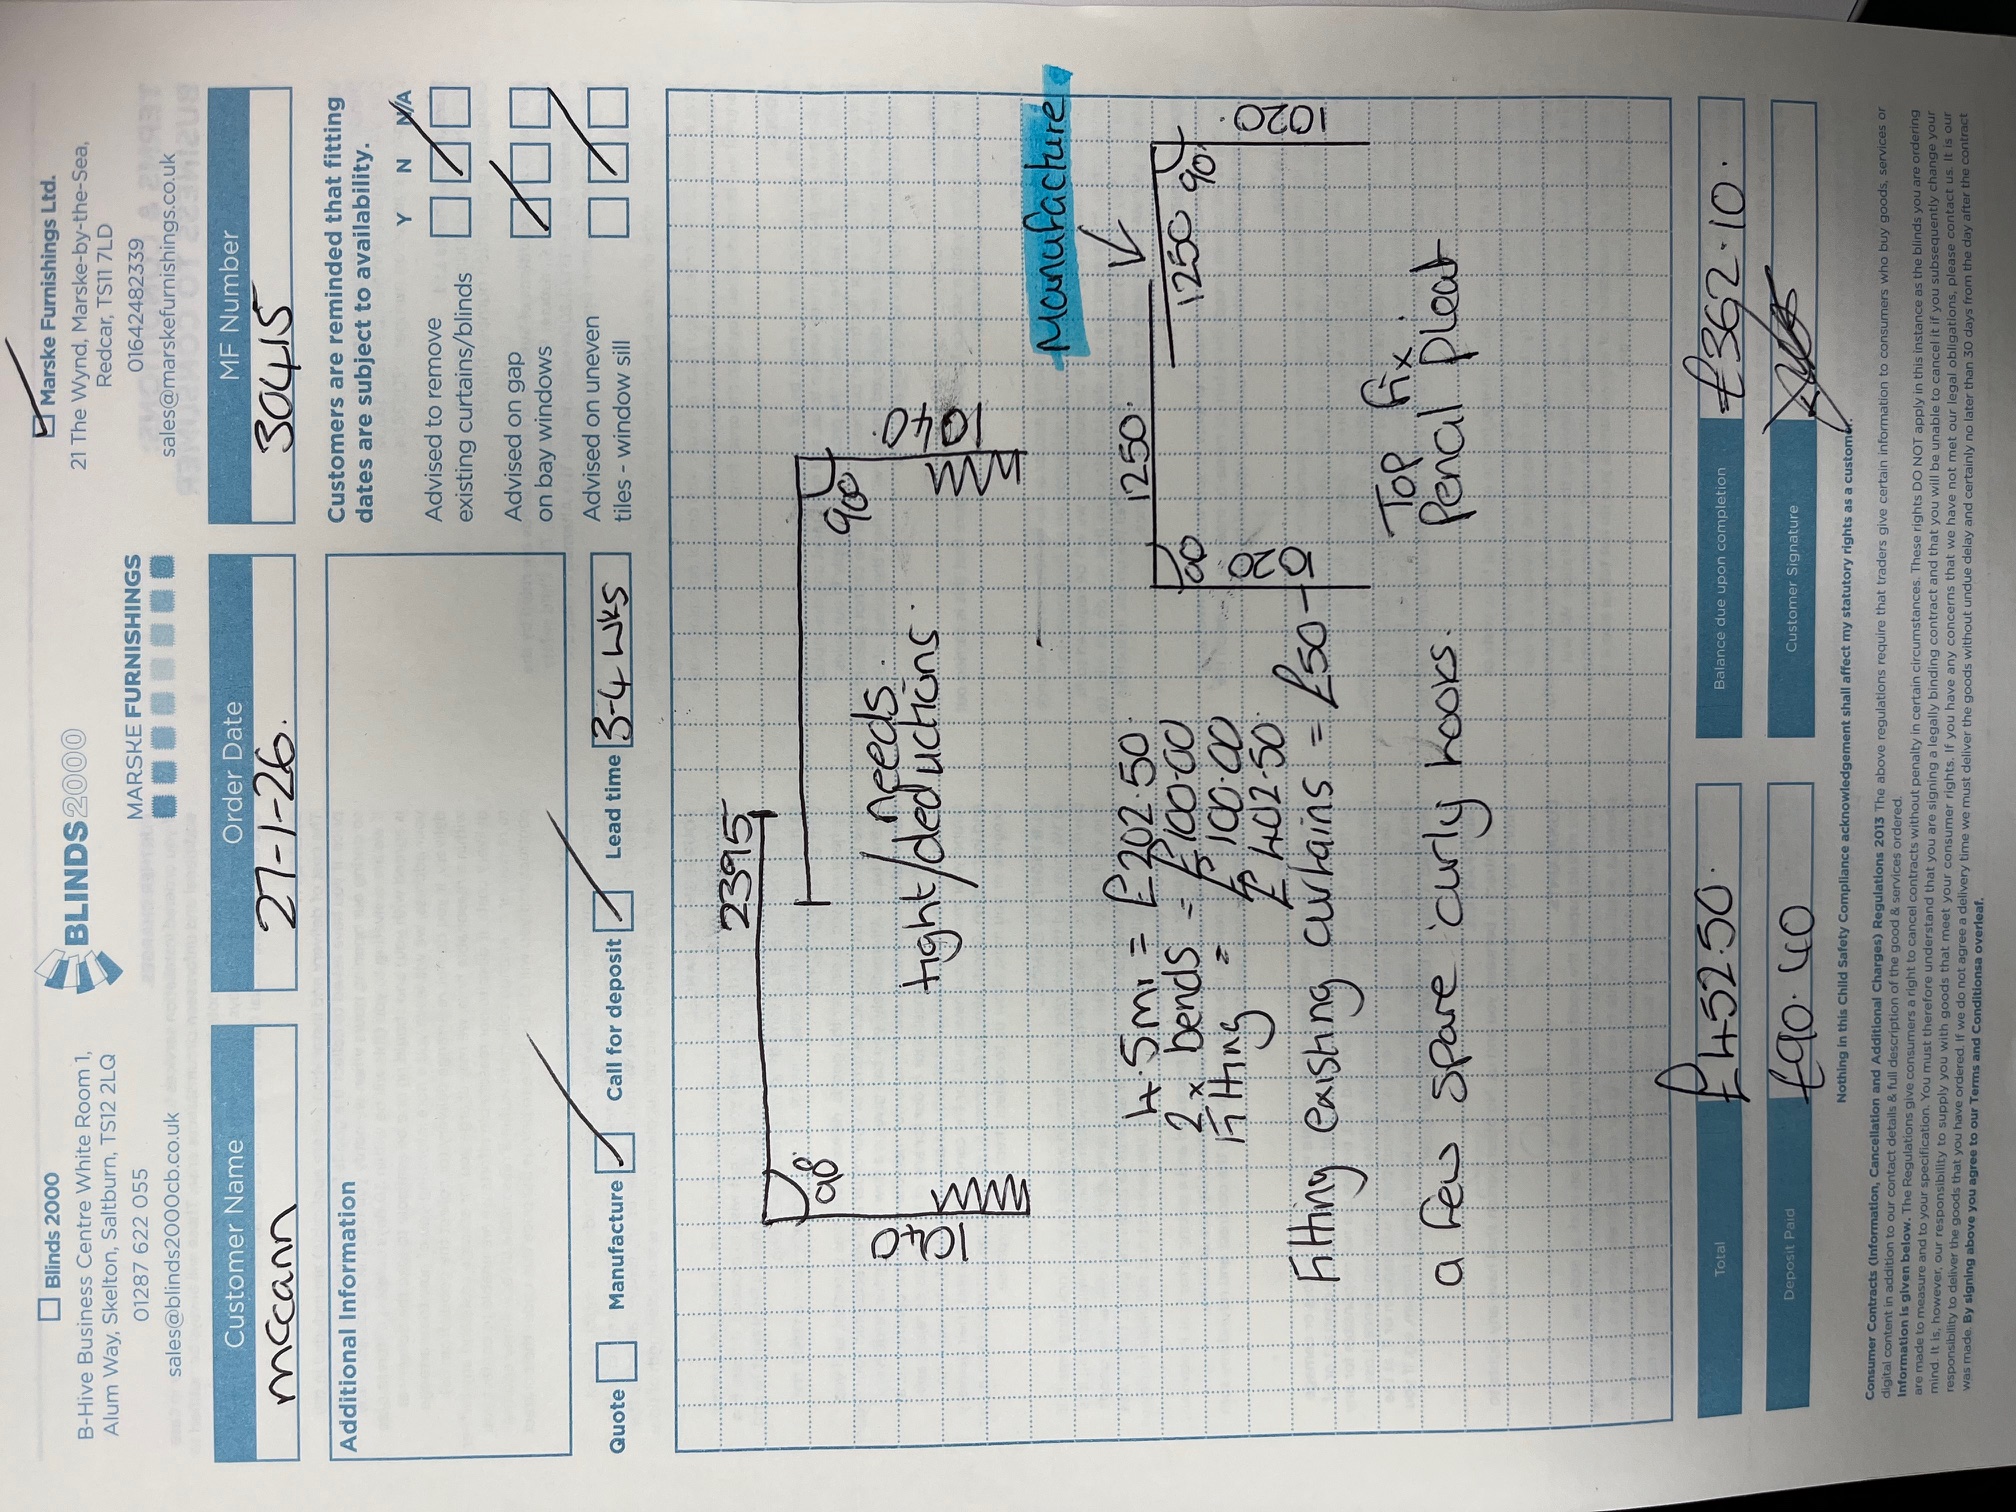 Blinds 2000
B-Hive Business Centre White Room 1,
Alum Way, Skelton, Saltburn, TS12 2LQ
01287 622 055
sales@blinds2000cb.co.uk
BLINDS2000
MARSKE FURNISHINGS
Marske Furnishings Ltd.
21 The Wynd, Marske-by-the-Sea,
Redcar, TS11 7LD
01642482339
sales@marskefurnishings.co.uk
Customer Name
mccann
Order Date
27-1-26.
MF Number
30415
Additional Information
Customers are reminded that fitting
dates are subject to availability.
Y N N/A
Advised to remove
existing curtains/blinds
Advised on gap
on bay windows
Advised on uneven
tiles - window sill
Quote
Manufacture
Call for deposit
Lead time 3-4 wks
2395
90
90
1040
1040
needs
tight/deductions.
Manufacture
1250.
1250
90
90
1020
1020
4.5m = £202.50.
2 x bends = £100.00
Fitting = £100.00
£402.50.
Fitting existing curtains = £50
Top fix
Pencil pleat
a few spare curly hooks.
Total
£452.50.
Balance due upon completion
£362.10.
Deposit Paid
£90.40
Customer Signature
Nothing in this Child Safety Compliance acknowledgement shall affect my statutory rights as a customer.
Consumer Contracts (Information, Cancellation and Additional Charges) Regulations 2013 The above regulations require that traders give certain information to consumers who buy goods, services or
digital content in addition to our contact details & full description of the good & services ordered.
Information is given below. The Regulations give consumers a right to cancel contracts without penalty in certain circumstances. These rights DO NOT apply in this instance as the blinds you are ordering
are made to measure and to your specification. You must therefore understand that you are signing a legally binding contract and that you will be unable to cancel it if you subsequently change your
mind. It is, however, our responsibility to supply you with goods that meet your consumer rights. If you have any concerns that we have not met our legal obligations, please contact us. It is our
responsibility to deliver the goods that you have ordered. If we do not agree a delivery time we must deliver the goods without undue delay and certainly no later than 30 days from the day after the contract
was made. By signing above you agree to our Terms and Conditionsa overleaf.